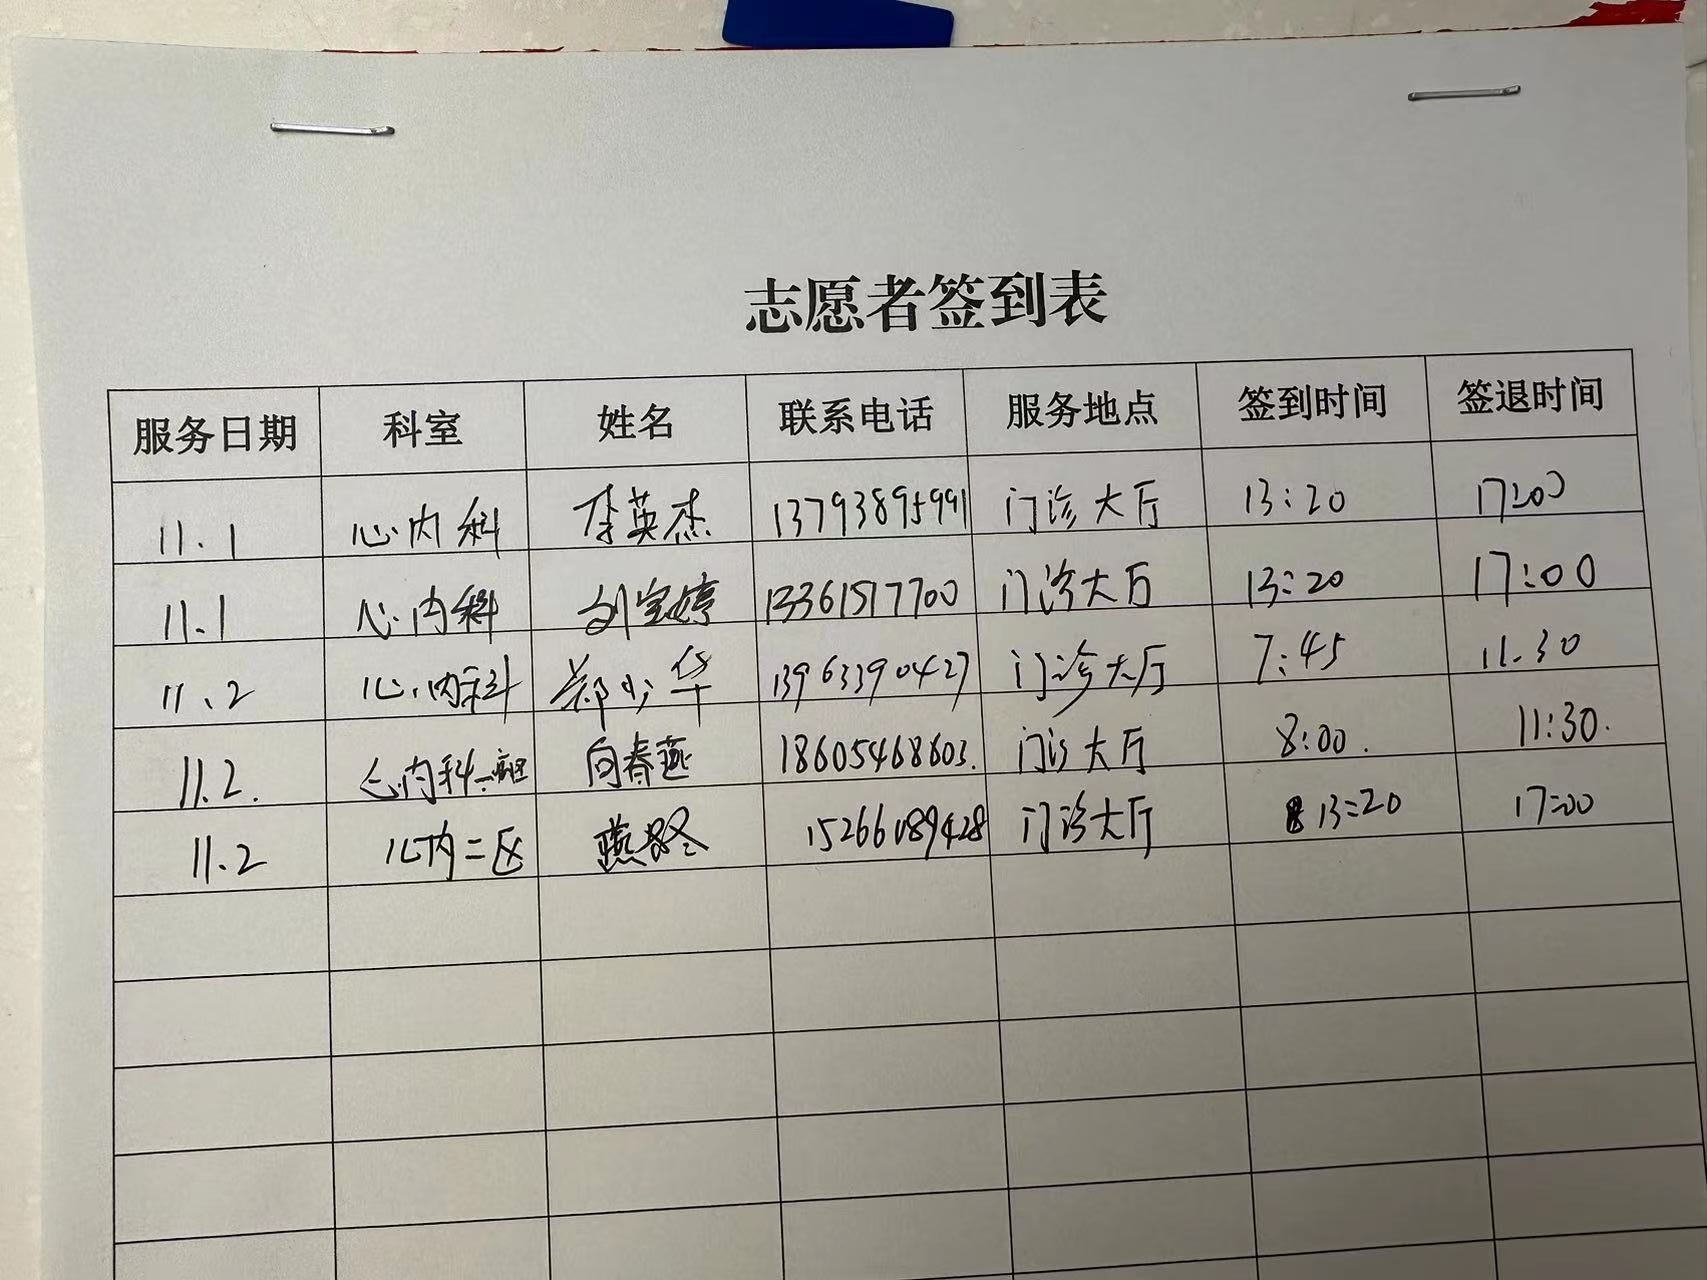 志愿者签到表
服务日期 科室 姓名 联系电话 服务地点 签到时间 签退时间
11.1 心内科 李英杰 13793895991 门诊大厅 13:20 17:00
11.1 心内科 刘宝婷 13361517700 门诊大厅 13:20 17:00
11.2 心内科 郑少华 13963390427 门诊大厅 7:45 11.30
11.2. 心内科一病区 向春燕 18605468603. 门诊大厅 8:00. 11:30.
11.2 心内二区 门诊大厅 13:20 17:00